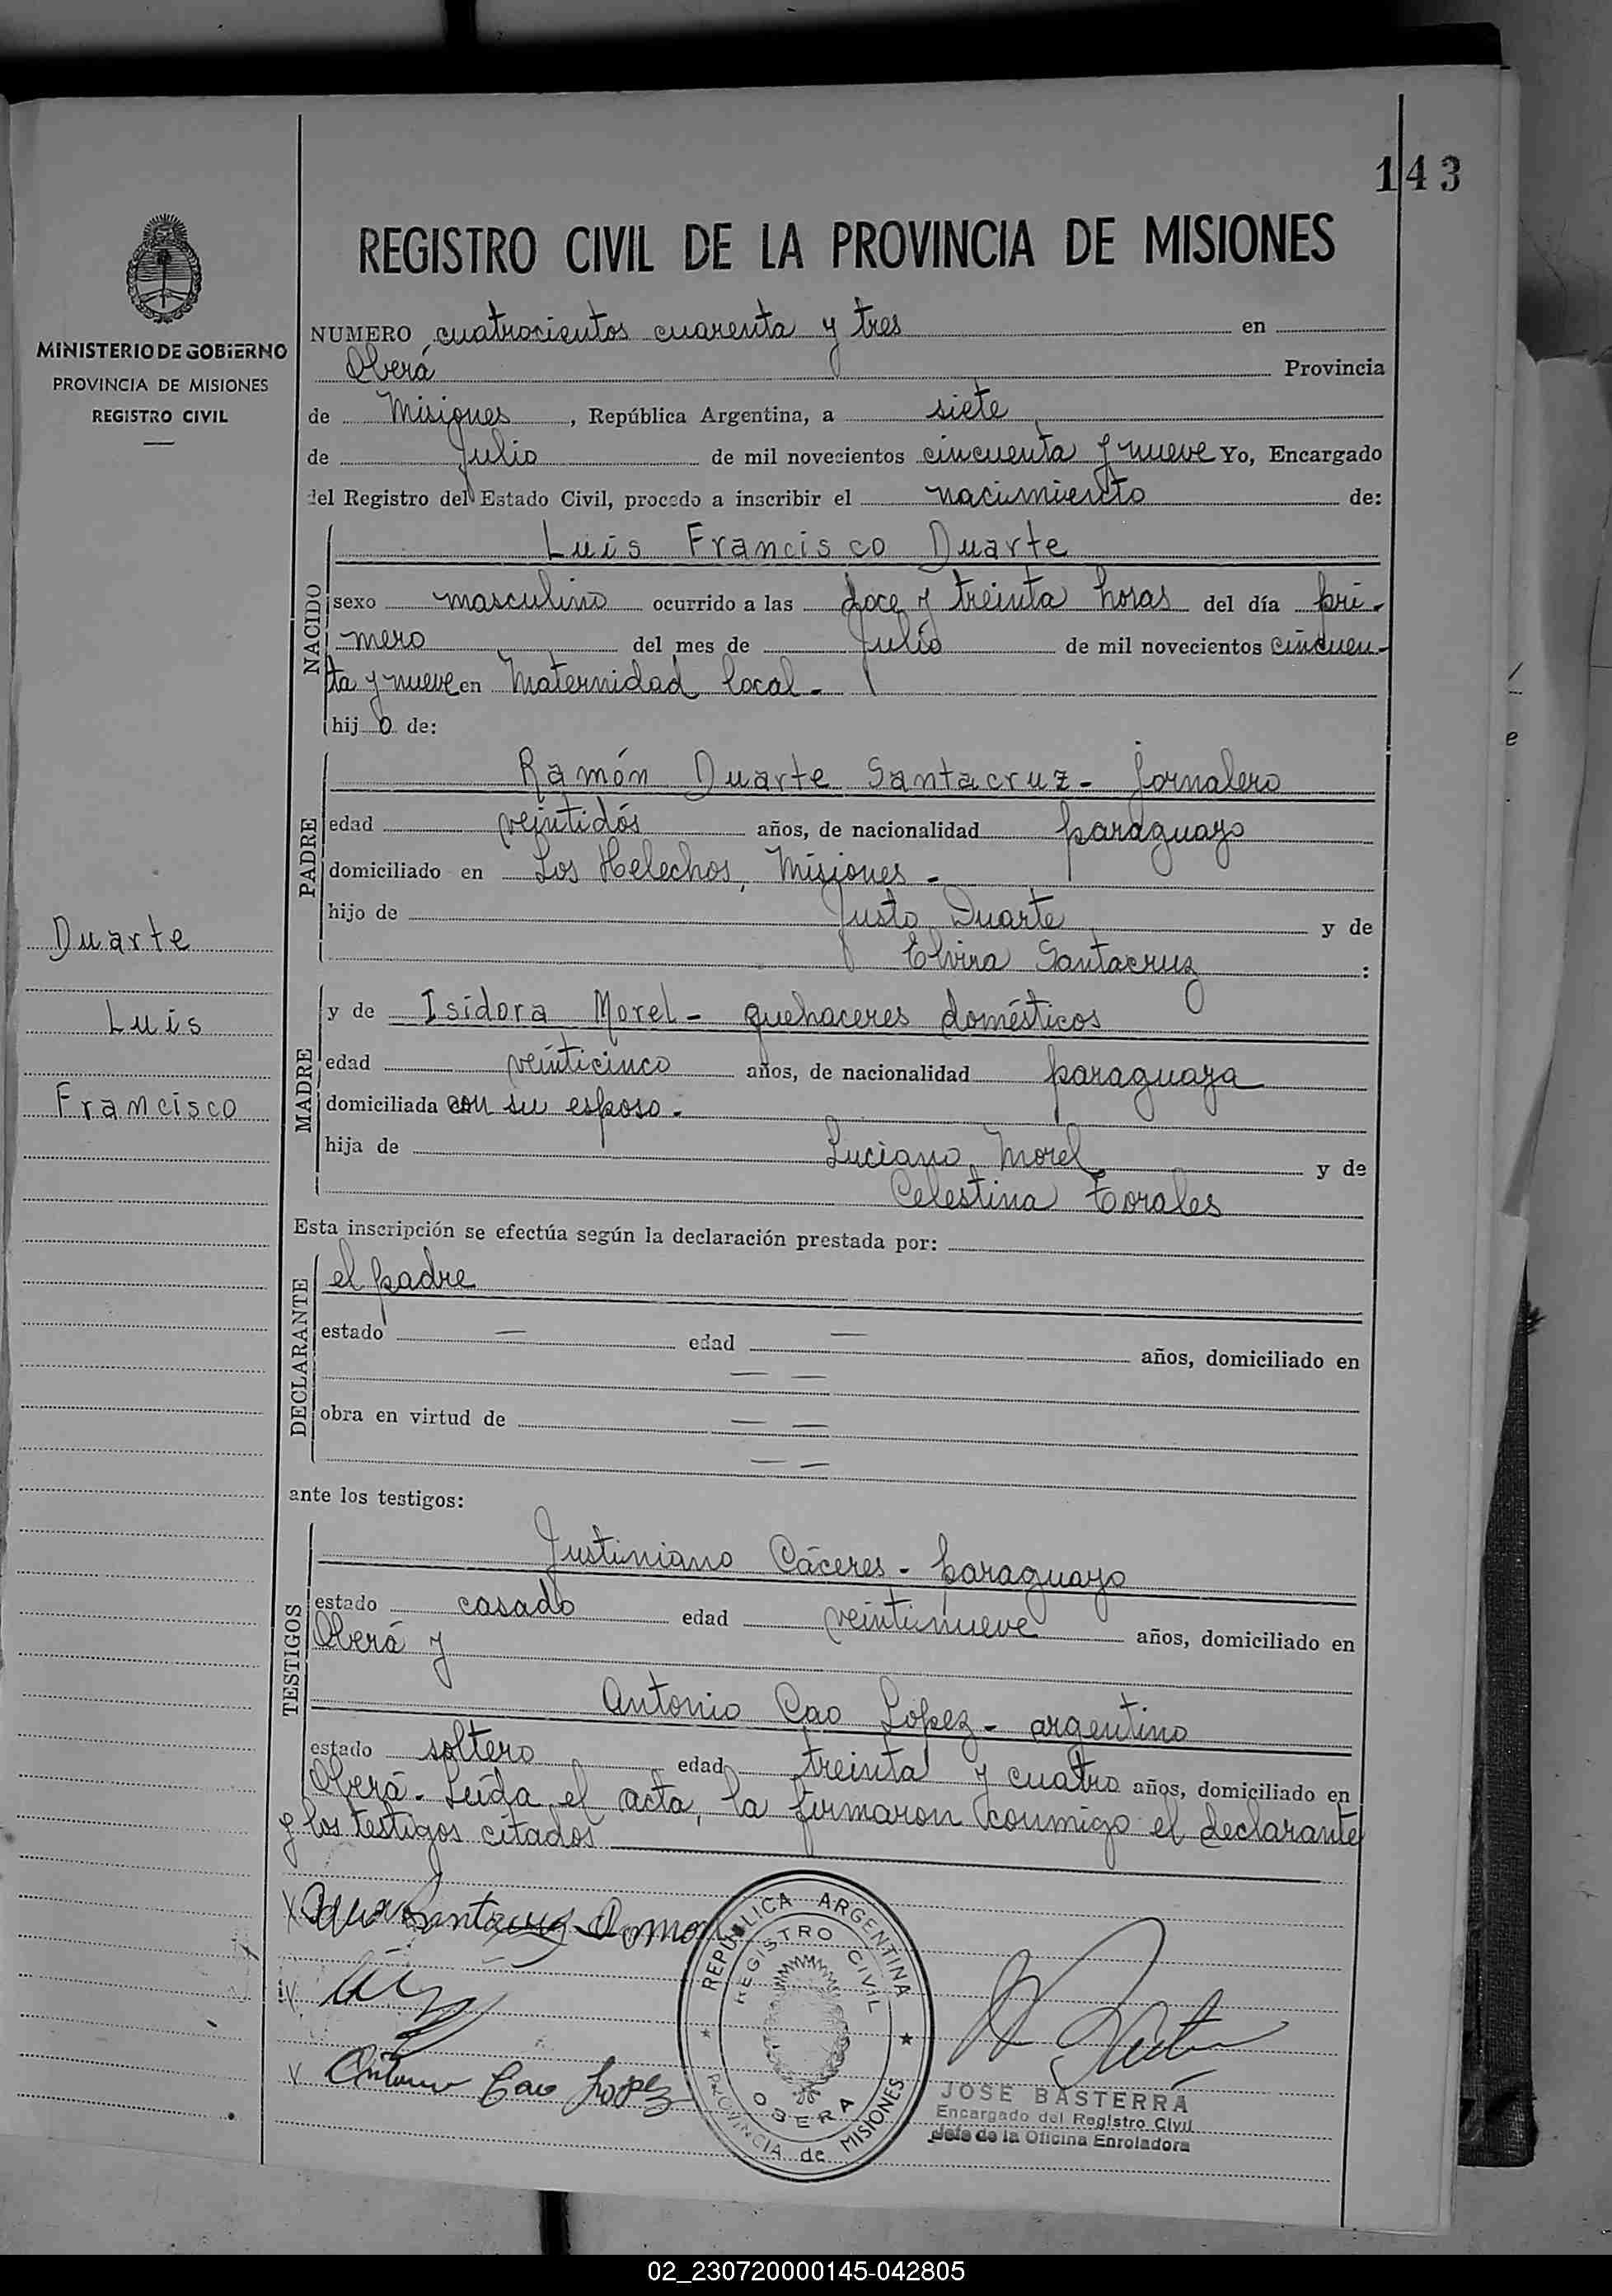 143
REGISTRO CIVIL DE LA PROVINCIA DE MISIONES
MINISTERIO DE GOBIERNO
PROVINCIA DE MISIONES
REGISTRO CIVIL
NUMERO cuatrocientos cuarenta y tres en
Oberá Provincia
de Misiones, República Argentina, a siete
de Julio de mil novecientos cincuenta y nueve Yo, Encargado
del Registro del Estado Civil, procedo a inscribir el nacimiento de:
NACIDO
Luis Francisco Duarte
sexo masculino ocurrido a las doce y treinta horas del día pri-
mero del mes de Julio de mil novecientos cincuen-
ta y nueve en Maternidad local.-
hijo de:
PADRE
Ramón Duarte Santacruz - Jornalero
edad veintidós años, de nacionalidad paraguayo
domiciliado en Los Helechos, Misiones -
hijo de Justo Duarte y de
Elvira Santacruz :
Duarte
Luis
Francisco
MADRE
y de Isidora Morel - quehaceres domésticos
edad veinticinco años, de nacionalidad paraguaya
domiciliada con su esposo.
hija de Luciano Morel y de
Celestina Torales
Esta inscripción se efectúa según la declaración prestada por:
DECLARANTE
el padre
estado — edad — años, domiciliado en
— —
obra en virtud de — —
— —
ante los testigos:
TESTIGOS
Justiniano Cáceres - paraguayo
estado casado edad veintinueve años, domiciliado en
Oberá y
Antonio Cao López - argentino
estado soltero edad treinta y cuatro años, domiciliado en
Oberá. Leída el acta, la firmaron conmigo el declarante
y los testigos citados
Santacruz
Antonio Cao Lopez
REPUBLICA ARGENTINA
REGISTRO CIVIL
OBERA
PROVINCIA de MISIONES
JOSE BASTERRA
Encargado del Registro Civil
Jefe de la Oficina Enroladora
02_230720000145-042805